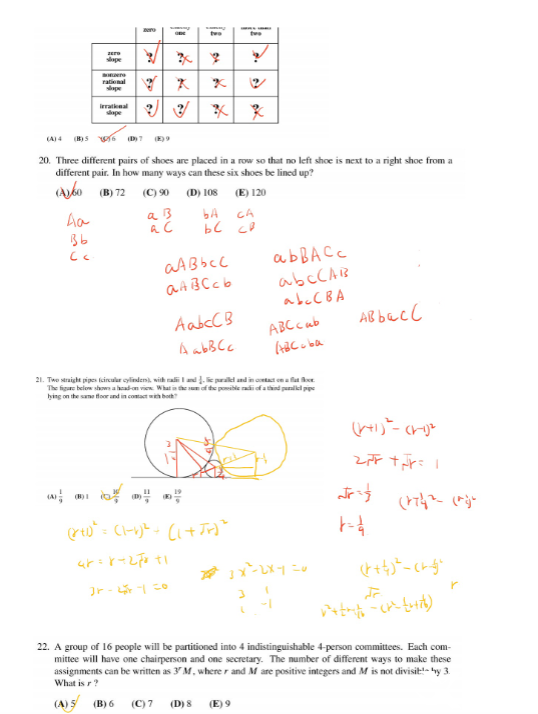 zero
one
two
two
zero
slope
? ? ? ?
nonzero
rational
slope
? ? ? ?
irrational
slope
? ? ? ?
(A) 4 (B) 5 (C) 6 (D) 7 (E) 9
20. Three different pairs of shoes are placed in a row so that no left shoe is next to a right shoe from a
different pair. In how many ways can these six shoes be lined up?
(A) 60 (B) 72 (C) 90 (D) 108 (E) 120
Aa
Bb
Cc
aB bA cA
aC bC cB
aABbcC
aABCcb
abBACc
abcCAB
abcCBA
AabcCB
AabBCc
ABCcab
ABCcba
ABbacC
21. Two straight pipes (circular cylinders), with radii 1 and 1/4, lie parallel and in contact on a flat floor.
The figure below shows a head-on view. What is the sum of the possible radii of a third parallel pipe
lying on the same floor and in contact with both?
(A) 1/9 (B) 1 (C) 10/9 (D) 11/9 (E) 19/9
(r+1)² - (r-1)²
2√r + √r = 1
√r = 1/3
r = 1/9
(r+1)² = (1-r)² + (1+√r)²
4r = r + 2√r + 1
3r - 2√r - 1 = 0
3x² - 2x - 1 = 0
3 1
1 -1
√r
r
22. A group of 16 people will be partitioned into 4 indistinguishable 4-person committees. Each com-
mittee will have one chairperson and one secretary. The number of different ways to make these
assignments can be written as 3^r M, where r and M are positive integers and M is not divisible by 3.
What is r ?
(A) 5 (B) 6 (C) 7 (D) 8 (E) 9